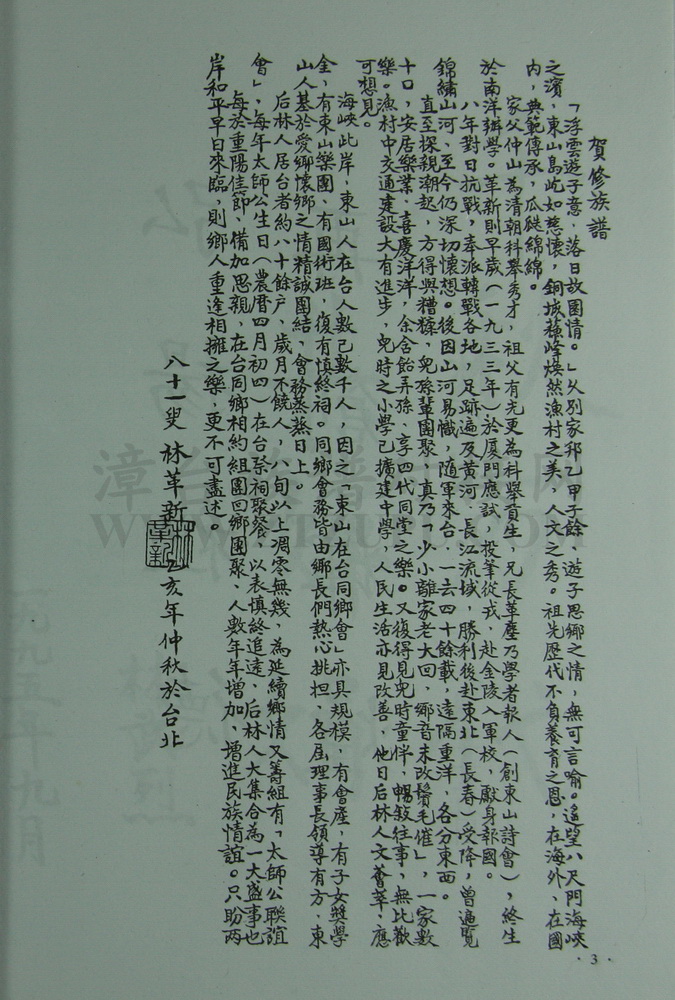 賀修族譜
「浮雲遊子意，落日故園情。」久別家邦乙甲子餘，遊子思鄉之情，無可言喻。遙望八尺門海峽
之濱，東山島屹如慈懷，銅城蘇峰煥然漁村之美，人文之秀。祖先歷代不負養育之恩，在海外、在國
內，典範傳承，瓜瓞綿綿。
家父仲山為清朝科舉秀才，祖父有光更為科舉貢生，兄長革塵乃學者報人（創東山詩會），終生
於南洋辦學。革新則早歲（一九三三年）於廈門應試，投筆從戎，赴金陵入軍校，獻身報國。
八年對日抗戰，奉派轉戰各地，足跡遍及黃河、長江流域，勝利後赴東北（長春）受降，曾遍覽
錦繡山河，至今仍深切懷想。後因山河易幟，隨軍來台，一去四十餘載，遠隔重洋，各分東西。
直至探親潮起，方得與糟糠，兒孫輩團聚，真乃「少小離家老大回，鄉音未改鬢毛催」，一家數
十口，安居樂業，喜慶洋洋，余含飴弄孫、享四代同堂之樂。又復得見兒時童伴，暢敘往事，無比歡
樂。漁村中交通建設大有進步，兒時之小學已擴建中學，人民生活亦見改善，他日后林人文薈萃，應
可想見。
海峽此岸，東山人在台人數已數千人，因之「東山在台同鄉會」亦具規模，有會產，有子女獎學
金，有東山樂團、有國術班，復有慎終祠。同鄉會務皆由鄉長們熱心挑担，各屆理事長領導有方，東
山人基於愛鄉懷鄉之情精誠團結，會務蒸蒸日上。
后林人居台者約八十餘戶，歲月不饒人，八旬以上凋零無幾，為延續鄉情又籌組有「太師公聯誼
會」，每年太師公生日（農曆四月初四）在台祭祠聚餐，以表慎終追遠，后林人大集合為一大盛事也
每於重陽佳節，備加思親，在台同鄉相約組團回鄉團聚，人數年年增加，增進民族情誼。只盼兩
岸和平早日來臨，則鄉人重逢相擁之樂，更不可盡述。
八十一叟 林革新 乙亥年仲秋於台北
林革新
·3·